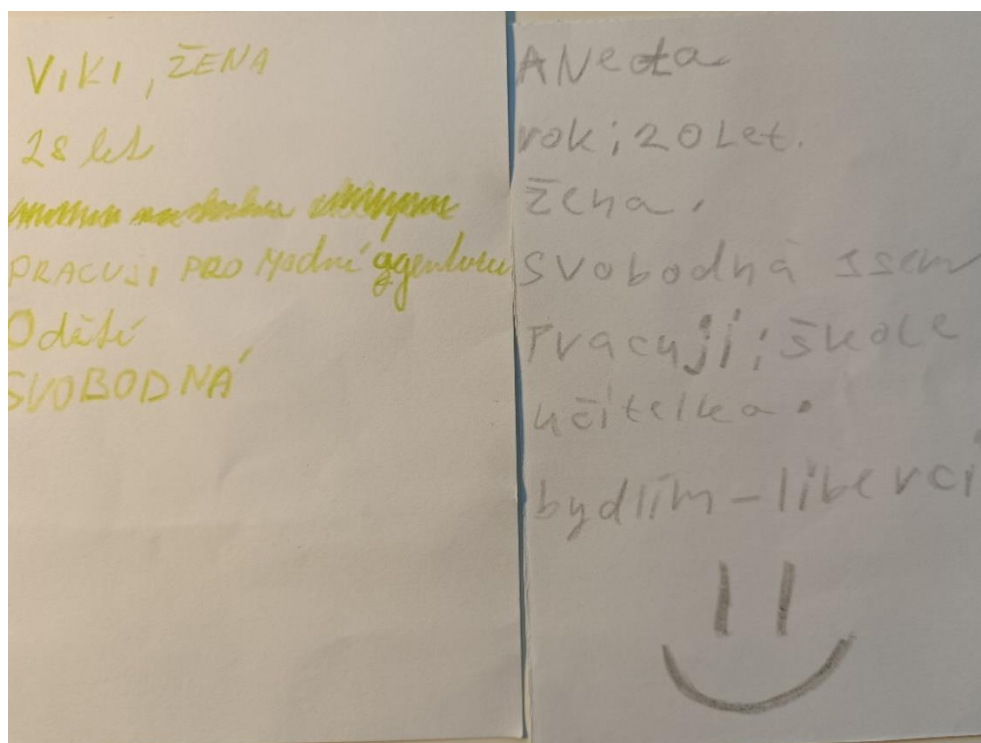 VIKI, ŽENA
28 let
PRACUJI PRO Módní agenturu
Oděti
SVOBODNÁ
ANeta
rok; 20 Let.
žena.
svobodná jsem
Pracuji; škole
učitelka.
bydlím - liberci